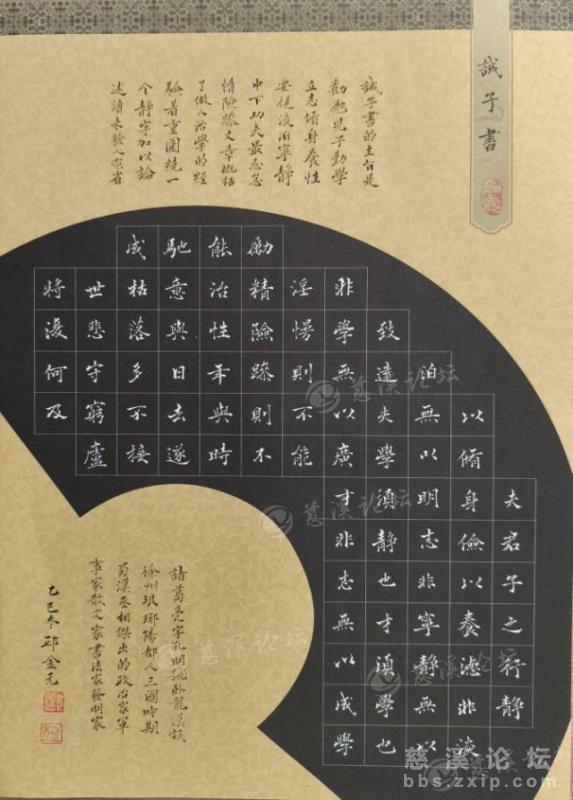 誡子書
誡子書的主旨是
勸勉兒子勤學
立志脩身養性
要從淡泊寧靜
中下功夫最忌怠
惰險躁文章概括
了做人治學的經
驗着重圍繞一
个靜字加以論
述讀來發人深省
夫君子之行靜
以脩身儉以養德非淡
泊無以明志非寧靜無以
致遠夫學須靜也才須學也
非學無以廣才非志無以成學
淫慢則不能
勵精險躁則不
能治性年與時
馳意與日去遂
成枯落多不接
世悲守窮廬
將復何及
諸葛亮字孔明號卧龍漢族
徐州琅琊陽都人三國時期
蜀漢丞相傑出的政治家軍
事家散文家書法家發明家
乙巳冬邱金元
慈溪论坛
慈溪论坛
慈溪论坛
慈溪论坛
慈溪论坛
bbs.zxip.com